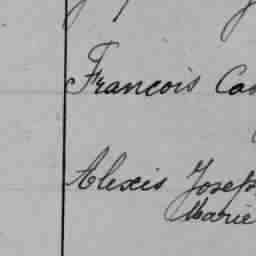 Francois
Alexis Joseph
Marie